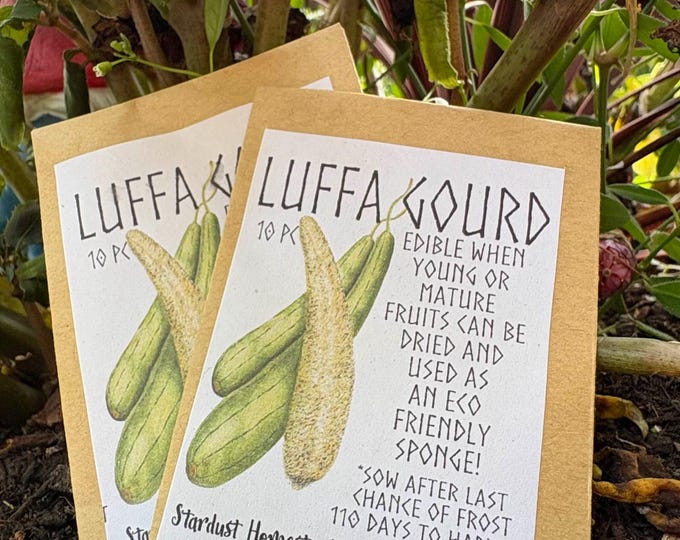 LUFFA G
10 PC
LUFFA GOURD
10 PC
EDIBLE WHEN
YOUNG OR
MATURE
FRUITS CAN BE
DRIED AND
USED AS
AN ECO
FRIENDLY
SPONGE!
*SOW AFTER LAST
CHANCE OF FROST
110 DAYS TO
Stardust